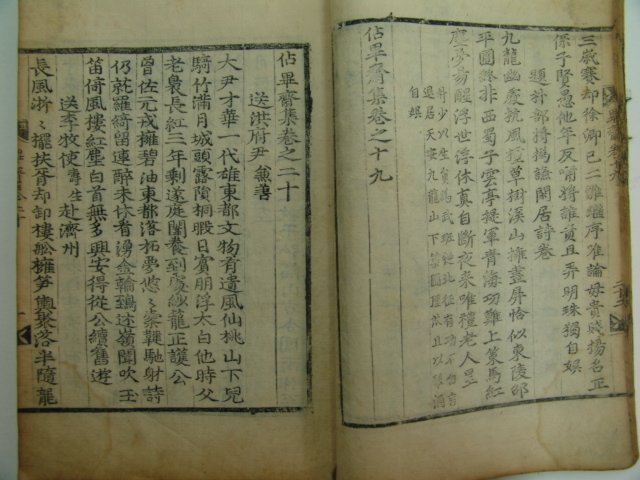 三歲賽却徐卿已二難繼序准論毋貴賤揚名正
保子賢愚他年反哨將誰責且弄明珠獨自娛
題許部將搗謙閑居詩卷
九龍幽處挹風
草樹溪山擁盡屏恰似東陵邵
平圃終非西蜀子雲亭提軍青海功難上策馬紅
塵夢易醒浮世浮休真自斷夜來唯禮老人星
自娛
佔畢齋集卷之十九
佔畢齋集卷之二十
送洪府尹兼善
大尹才華一代雄東都文物有遺風仙桃山下兒
騎竹滿月城頭露隕桐暇日賓朋浮太白他時父
老裊長紅三年剩遂庭闈養到處紗籠正護公
曾佐元戎擁碧油東都落拓夢悠悠崇鞬馳射詩
仍就羅綺留連醉未休看湧金輪鵄述嶺聞吹玉
笛倚風樓紅塵白首無多興安得從公續舊遊
送李牧使壽生赴濟州
長風淅淅擺扶胥却卸樓舩擁笋輿聚落半隨龍